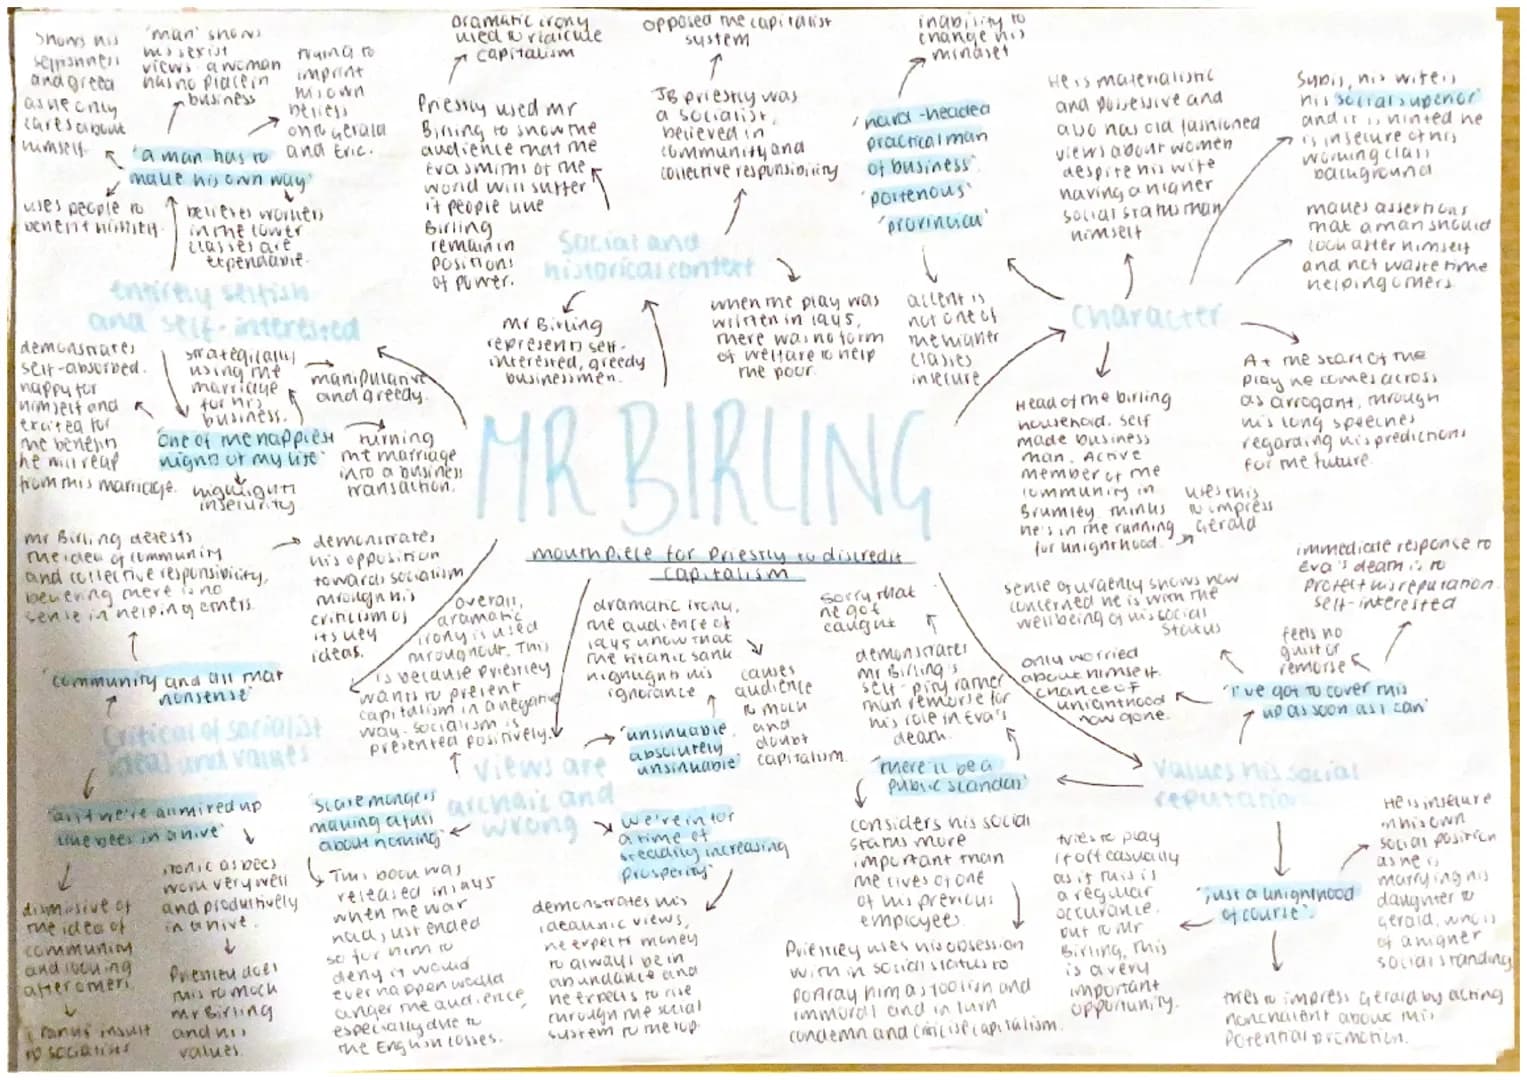 shows his
selfishness
and greed
as he only
cares about
himself.
'man' shows
his sexist
views - a woman
has no place in
business
trying to
imprint
his own
beliefs
onto Gerald
and Eric.
'a man has to
make his own way'
uses people to
benefit himself.
believes workers
in the lower
classes are
expendable.
entirely selfish
and self-interested
demonstrates
self-absorbed.
happy for
himself and
excited for
the benefits
he will reap
from this marriage.
strategically
using the
marriage
for his
business.
manipulative
and greedy.
'One of the happiest
nights of my life'
highlights
insecurity
turning
the marriage
into a business
transaction.
dramatic irony
used to ridicule
capitalism
Priestly used Mr
Birling to show the
audience that the
Eva Smiths of the
world will suffer
if people like
Birling
remain in
positions
of power.
opposed the capitalist
system
JB priestly was
a socialist,
believed in
community and
collective responsibility
Social and
historical context
Mr Birling
represents self-
interested, greedy
businessmen.
when the play was
written in 1945,
there was no form
of welfare to help
the poor.
inability to
change his
mindset
'hard-headed
practical man
of business'
'portenous'
'provincial'
accent is
not one of
the higher
classes
insecure
He is materialistic
and possessive and
also has old fashioned
views about women
despite his wife
having a higher
social status than
himself
Sybil, his wife is
his 'social superior'
and it is hinted he
is insecure of his
working class
background
makes assertions
that a man should
look after himself
and not waste time
helping others
Character
Head of the birling
household. Self
made business
man. Active
member of the
community in
Brumley. thinks
he's in the running
for knighthood.
uses this
to impress
Gerald
At the start of the
play he comes across
as arrogant, through
his long speeches
regarding his predictions
for the future.
MR BIRLING
mouthpiece for Priestly to discredit
capitalism
Mr Birling detests
the idea of community
and collective responsibility,
believing there is no
sense in helping others.
demonstrates
his opposition
towards socialism
through his
criticism of
its key
ideas.
'community and all that
nonsense'
Critical of socialist
ideas and values
'as if we're all mixed up
like bees in a hive'
dismissive of
the idea of
community
and looking
after others
ironic as bees
work very well
and productively
in a hive.
Priestley does
this to mock
Mr Birling
and his
values.
overall,
dramatic
irony is used
throughout. This
is because Priestley
wants to present
capitalism in a negative
way. socialism is
presented positively.
views are
archaic and
wrong
'scaremongers
making a fuss
about nothing'
This book was
released in 1945
when the war
had just ended
so for him to
deny it would
ever happen would
anger the audience,
especially due to
the English losses.
dramatic irony,
the audience of
1945 know that
the titanic sank.
highlights his
ignorance
'unsinkable,
absolutely
unsinkable'
causes
audience
to mock
and
doubt
capitalism.
'we're in for
a time of
steadily increasing
prosperity'
demonstrates his
idealistic views,
he expects money
to always be in
abundance and
he expects to rise
through the social
system to the top.
sorry that
he got
caught
demonstrates
Mr Birling's
self-pity rather
than remorse for
his role in Eva's
death.
'there'll be a
public scandal'
considers his social
status more
important than
the lives of one
of his previous
employees.
Priestley uses his obsession
with in social status to
portray him as foolish and
immoral and in turn
condemn and criticise capitalism.
sense of urgency shows how
concerned he is with the
wellbeing of his social
status
only worried
about himself.
chance of
knighthood
now gone.
immediate response to
Eva's death is to
protect his reputation.
self-interested
feels no
guilt or
remorse
'I've got to cover this
up as soon as I can'
values his social
reputation
tries to play
it off casually
as if this is
a regular
occurance.
but to Mr
Birling, this
is a very
important
opportunity.
'just a knighthood
of course'
He is insecure
in his own
social position
as he is
marrying his
daughter to
Gerald, who is
of a higher
social standing
tries to impress Gerald by acting
nonchalent about this
potential promotion.